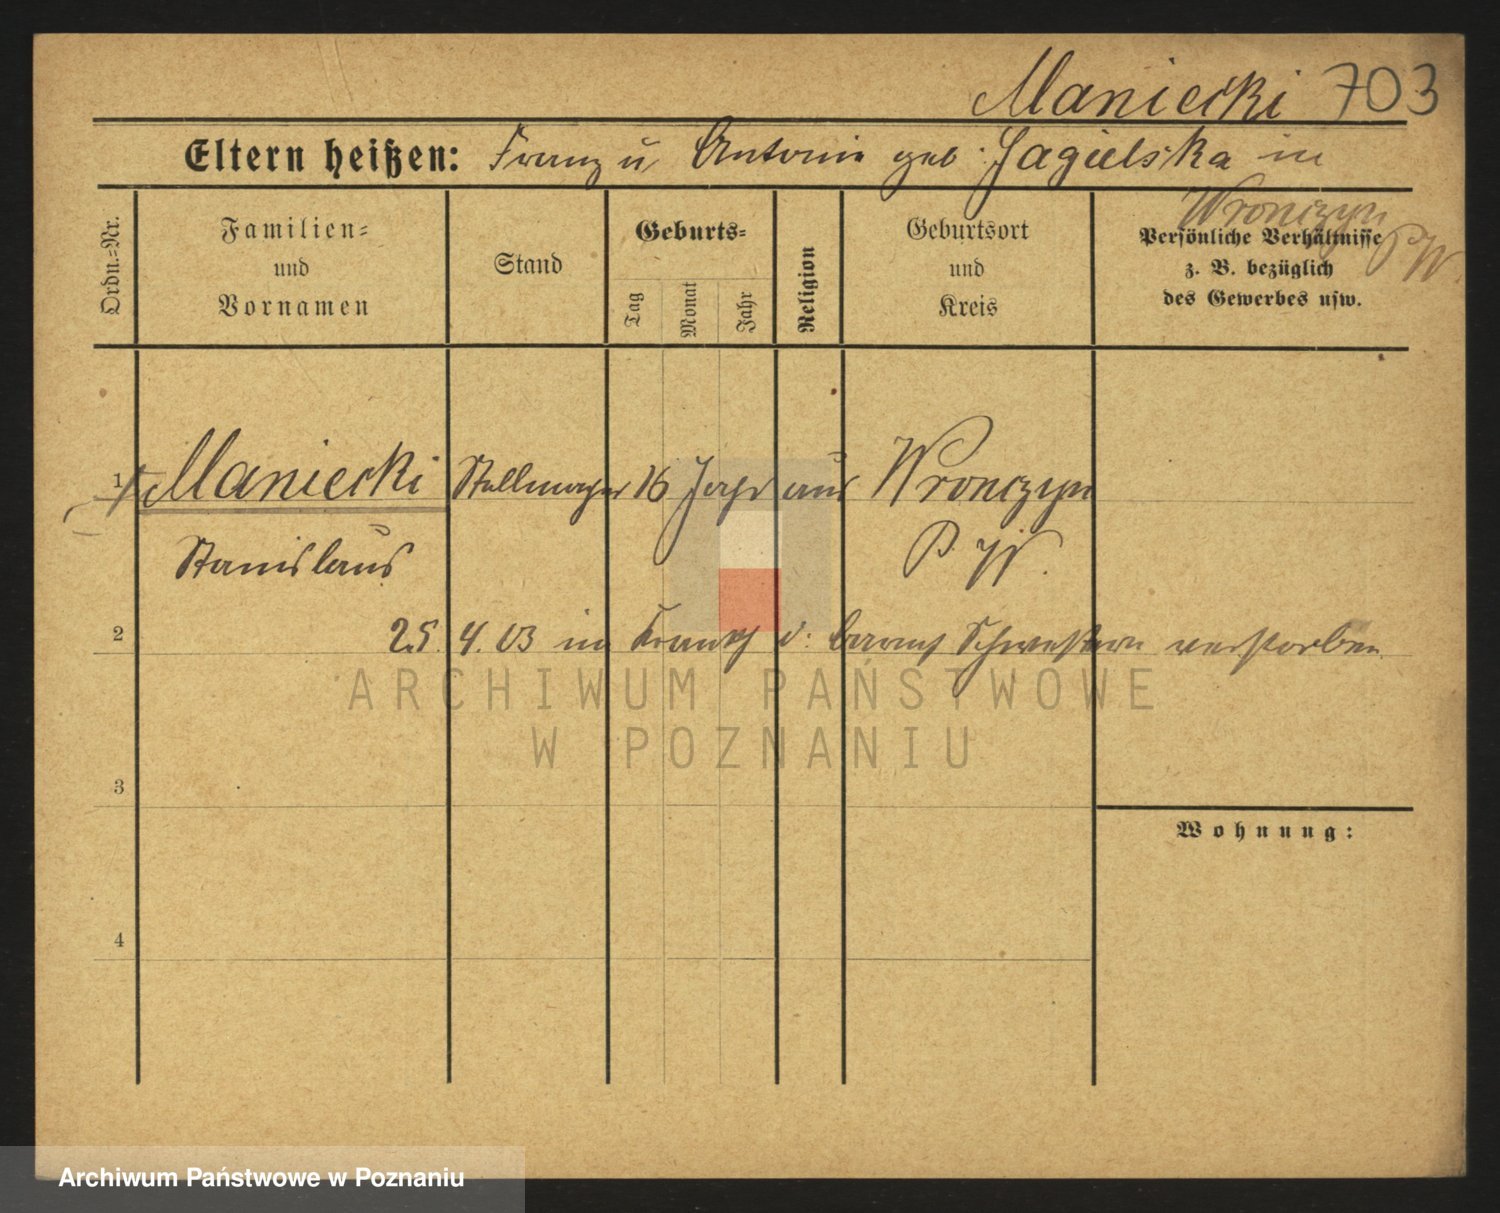 Maniecki 703
Eltern heißen: Franz u Antonie geb. Jagielska in
Wronczyn
P W
Ordn.-Nr.
Familien-
und
Vornamen
Stand
Geburts-
Tag
Monat
Jahr
Religion
Geburtsort
und
Kreis
Persönliche Verhältnisse
z. B. bezüglich
des Gewerbes usw.
1 Maniecki Stellmacher 16 Jahr aus Wronczyn
Stanislaus P. W.
2 25. 4. 03 im Krankh d. barmh Schwestern verstorben
ARCHIWUM PAŃSTWOWE
W POZNANIU
3
Wohnung:
4
Archiwum Państwowe w Poznaniu